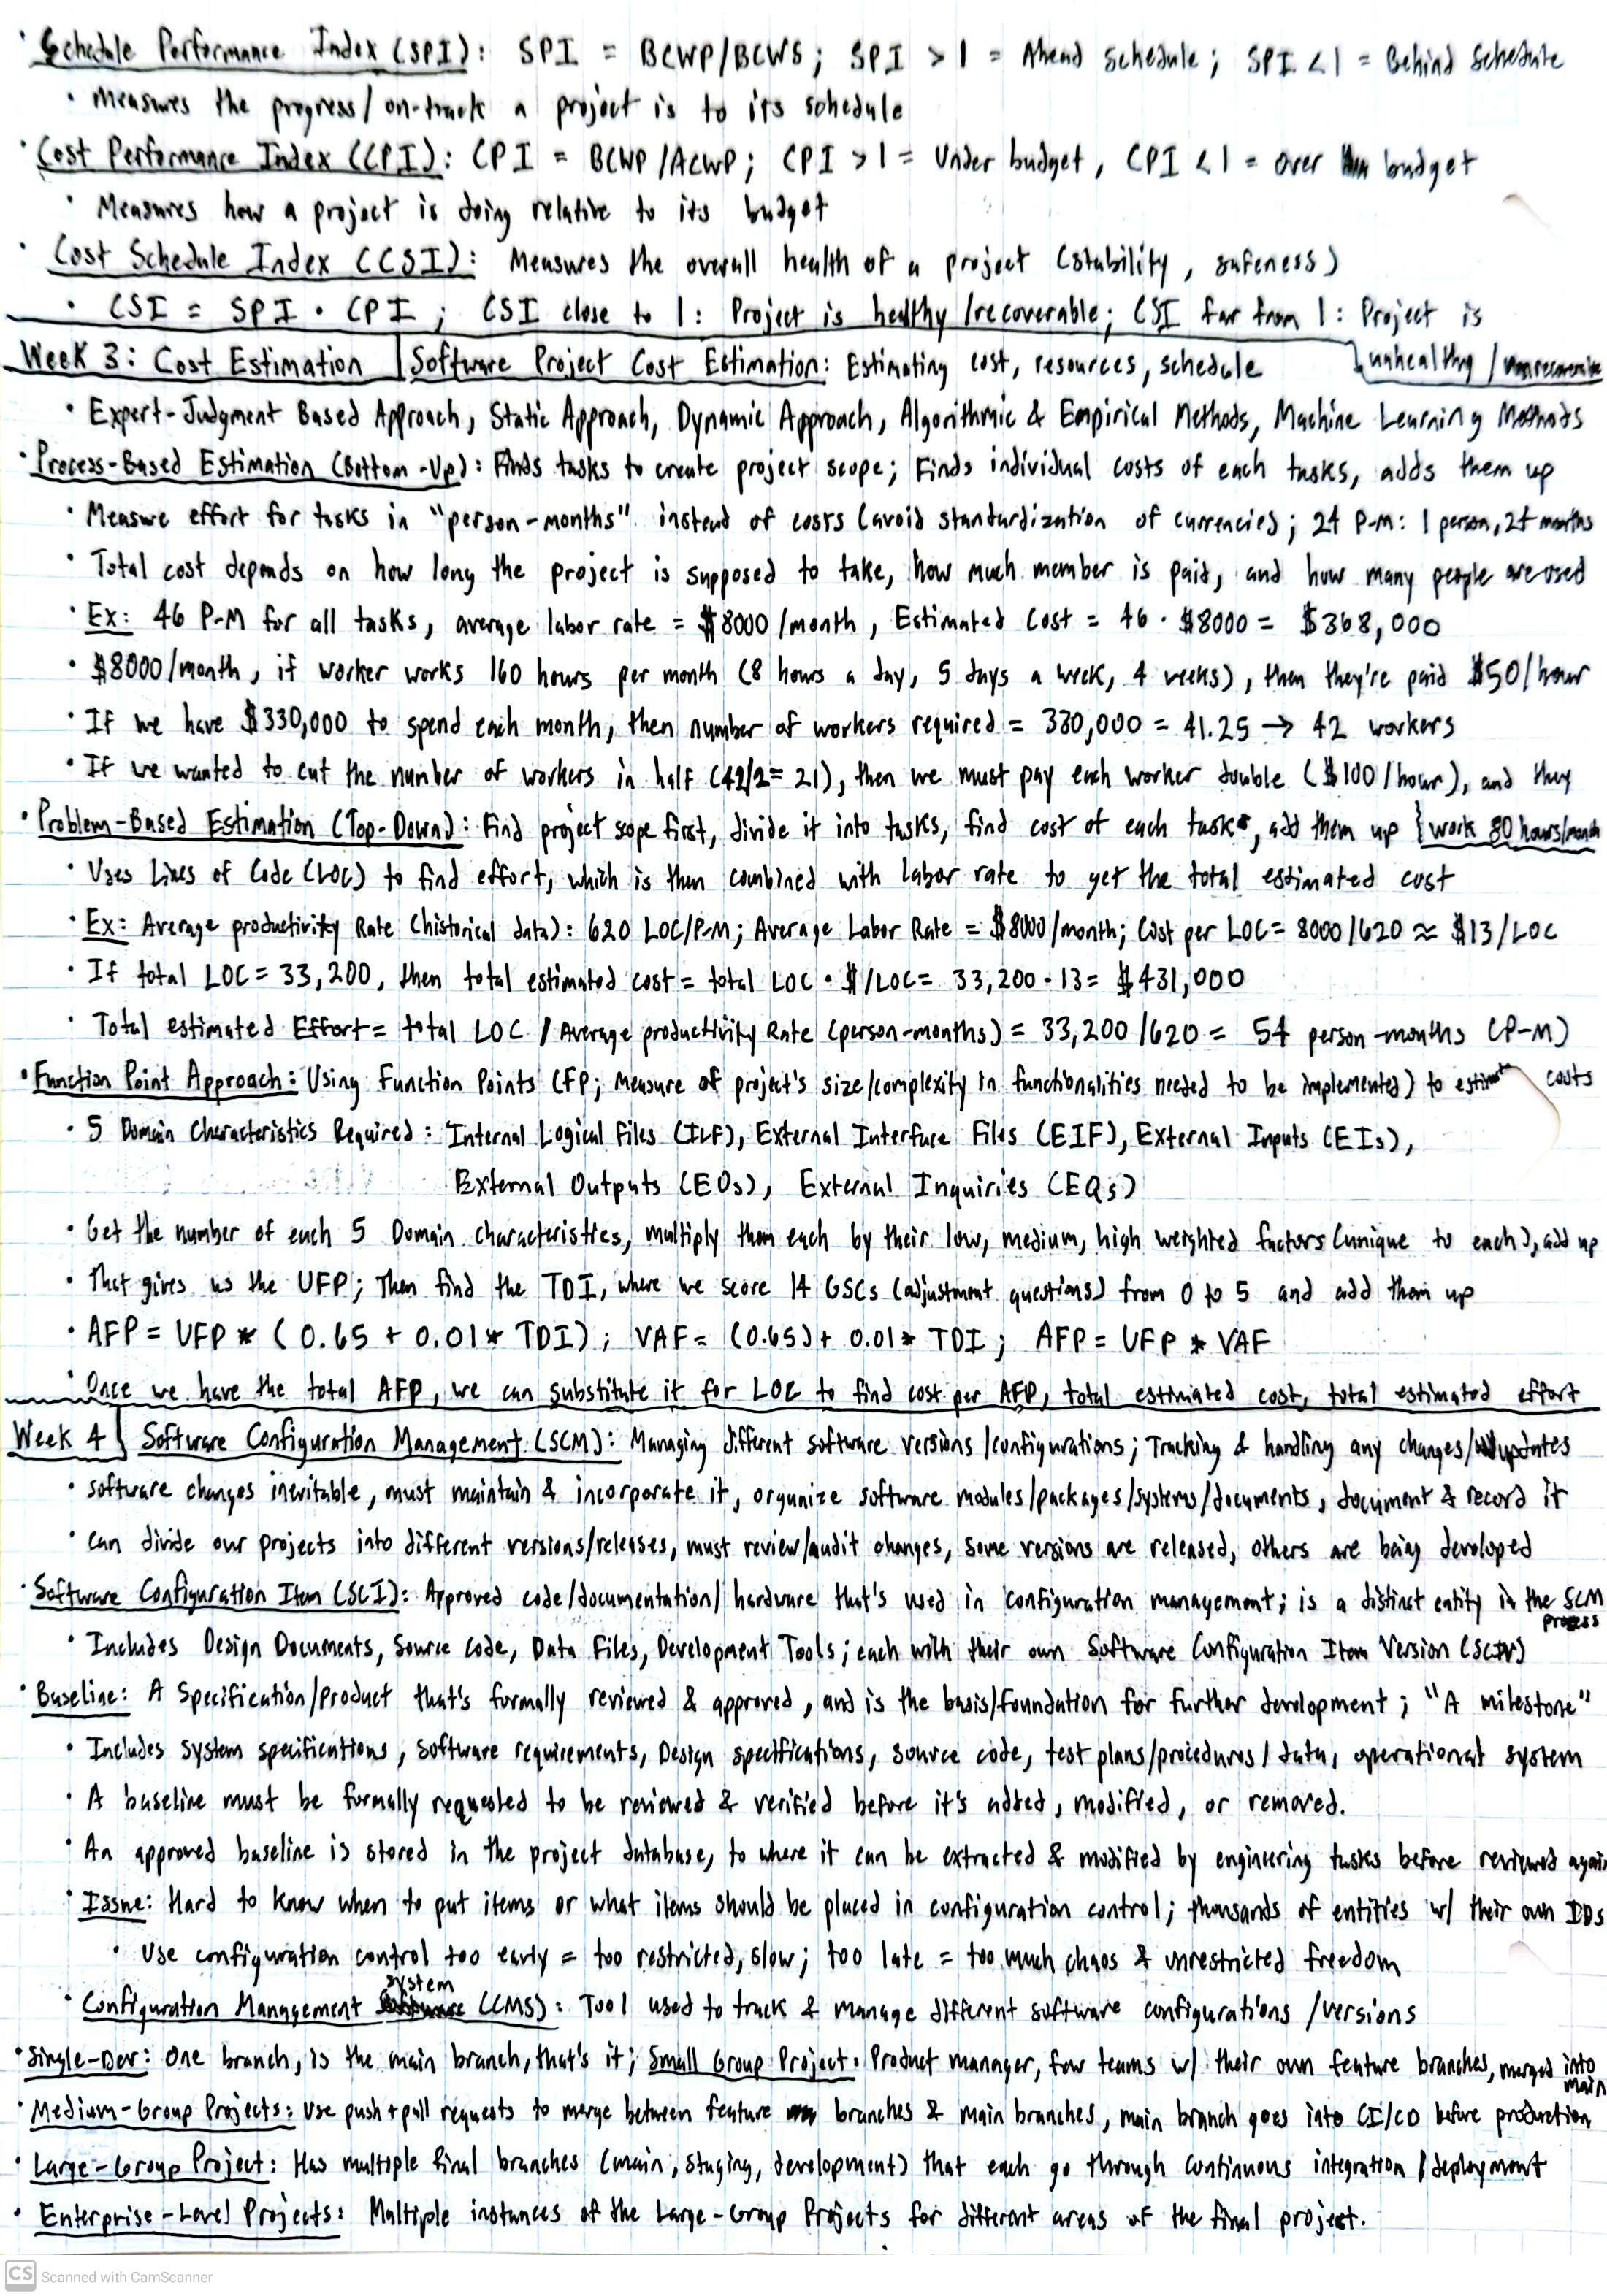 · Schedule Performance Index (SPI): SPI = BCWP/BCWS; SPI > 1 = Ahead Schedule; SPI < 1 = Behind Schedule
· Measures the progress/on-track a project is to its schedule
· Cost Performance Index (CPI): CPI = BCWP/ACWP; CPI > 1 = Under budget, CPI < 1 = over budget
· Measures how a project is doing relative to its budget
· Cost Schedule Index (CSI): Measures the overall health of a project (stability, safeness)
· CSI = SPI · CPI; CSI close to 1: Project is healthy/recoverable; CSI far from 1: Project is
Week 3: Cost Estimation | Software Project Cost Estimation: Estimating cost, resources, schedule unhealthy/
· Expert-Judgment Based Approach, Static Approach, Dynamic Approach, Algorithmic & Empirical Methods, Machine Learning Methods
· Process-Based Estimation (Bottom-Up): Finds tasks to create project scope; Finds individual costs of each tasks, adds them up
· Measure effort for tasks in "person-months" instead of costs (avoid standardization of currencies); 24 P-M: 1 person, 24 months
· Total cost depends on how long the project is supposed to take, how much member is paid, and how many people are used
· Ex: 46 P-M for all tasks, average labor rate = $8000/month, Estimated Cost = 46 · $8000 = $368,000
· $8000/month, if worker works 160 hours per month (8 hours a day, 5 days a week, 4 weeks), then they're paid $50/hour
· If we have $330,000 to spend each month, then number of workers required = 330,000 = 41.25 → 42 workers
· If we wanted to cut the number of workers in half (42/2 = 21), then we must pay each worker double ($100/hour), and they
· Problem-Based Estimation (Top-Down): Find project scope first, divide it into tasks, find cost of each task, add them up } work 80 hours/month
· Uses Lines of Code (LOC) to find effort, which is then combined with labor rate to get the total estimated cost
· Ex: Average productivity Rate (historical data): 620 LOC/P-M; Average Labor Rate = $8000/month; Cost per LOC = 8000/620 ≈ $13/LOC
· If total LOC = 33,200, then total estimated cost = total LOC · $/LOC = 33,200 · 13 = $431,000
· Total estimated Effort = total LOC / Average productivity Rate (person-months) = 33,200/620 = 54 person-months (P-M)
· Function Point Approach: Using Function Points (FP; measure of project's size/complexity in functionalities needed to be implemented) to estimate costs
· 5 Domain Characteristics Required: Internal Logical Files (ILF), External Interface Files (EIF), External Inputs (EIs),
External Outputs (EOs), External Inquiries (EQs)
· Get the number of each 5 Domain characteristics, multiply them each by their low, medium, high weighted factors (unique to each), add up
· That gives us the UFP; Then find the TDI, where we score 14 GSCs (adjustment questions) from 0 to 5 and add them up
· AFP = UFP * (0.65 + 0.01 * TDI); VAF = (0.65) + 0.01 * TDI; AFP = UFP * VAF
· Once we have the total AFP, we can substitute it for LOC to find cost per AFP, total estimated cost, total estimated effort
Week 4 | Software Configuration Management (SCM): Managing different software versions/configurations; Tracking & handling any changes/updates
· software changes inevitable, must maintain & incorporate it, organize software modules/packages/systems/documents, document & record it
· can divide our projects into different versions/releases, must review/audit changes, some versions are released, others are being developed
· Software Configuration Item (SCI): Approved code/documentation/hardware that's used in configuration management; is a distinct entity in the SCM process
· Includes Design Documents, Source code, Data Files, Development Tools; each with their own Software Configuration Item Version (SCIV)
· Baseline: A Specification/product that's formally reviewed & approved, and is the basis/foundation for further development; "A milestone"
· Includes system specifications, software requirements, Design specifications, source code, test plans/procedures/data, operational system
· A baseline must be formally requested to be reviewed & verified before it's added, modified, or removed.
· An approved baseline is stored in the project database, to where it can be extracted & modified by engineering tasks before reviewed again
· Issue: Hard to know when to put items or what items should be placed in configuration control; thousands of entities w/ their own IDs
· Use configuration control too early = too restricted, slow; too late = too much chaos & unrestricted freedom
· Configuration Management system (CMS): Tool used to track & manage different software configurations/versions
· Single-Dev: One branch, is the main branch, that's it; Small Group Project: Product manager, few teams w/ their own feature branches, merged into main
· Medium-Group Projects: Use push + pull requests to merge between feature branches & main branches, main branch goes into CI/CD before production
· Large-Group Project: Has multiple final branches (main, staging, development) that each go through continuous integration/deployment
· Enterprise-Level Projects: Multiple instances of the Large-Group Projects for different areas of the final project.
CS Scanned with CamScanner